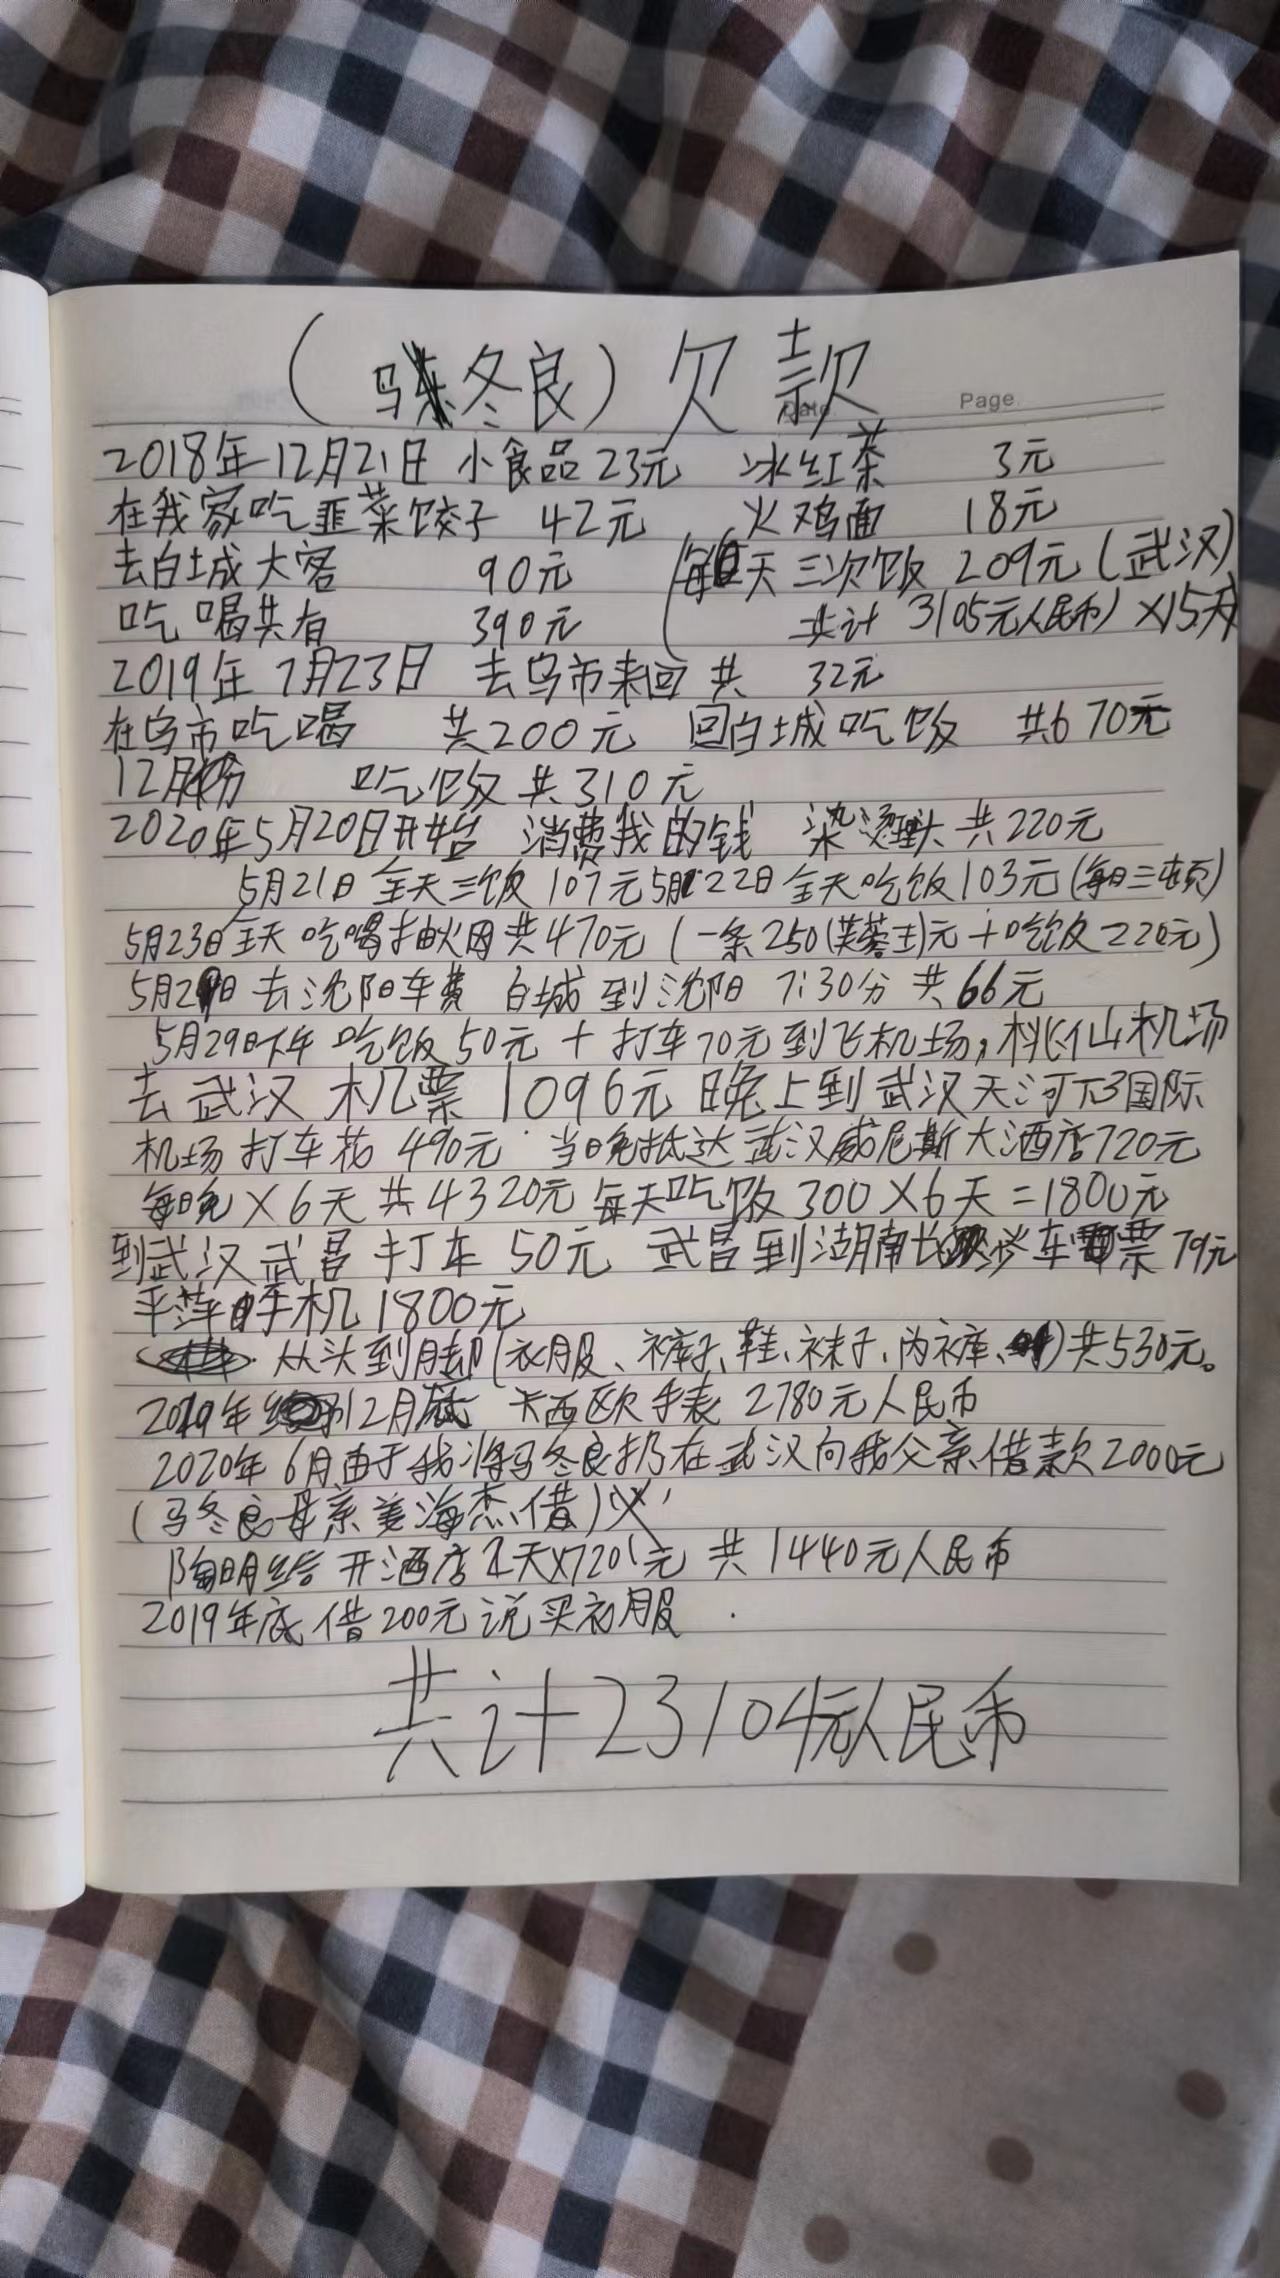 (马冬良)欠款
Date. Page.
2018年12月21日 小食品23元 冰红茶 3元
在我家吃韭菜饺子 42元 火鸡面 18元
去白城大客 90元 (每天三次饭 209元(武汉)
吃喝共有 390元 共计 3105元人民币) ×15天
2019年7月23日 去乌市来回共 32元
在乌市吃喝 共200元 回白城吃饭 共670元
12月份 吃饭共310元
2020年5月20日开始 消费我的钱 染烫头共220元
5月21日全天三饭107元5月22日全天吃饭103元(每日三顿)
5月23日全天吃喝抽烟共470元(一条250(芙蓉王)元+吃饭220元)
5月29日去沈阳车费 白城到沈阳 7:30分 共66元
5月29日下午 吃饭50元+打车70元到飞机场,桃仙机场
去武汉机票1096元 晚上到武汉天河T3国际
机场打车花490元 当晚抵达武汉威尼斯大酒店720元
每晚×6天共4320元每天吃饭300×6天=1800元
到武汉武昌打车50元 武昌到湖南长沙车票79元
手机1800元
从头到脚(衣服、裤子、鞋、袜子、内裤、)共530元。
2019年12月底 卡西欧手表 2780元人民币
2020年6月由于我将马冬良扔在武汉向我父亲借款2000元
(马冬良母亲姜海杰借)
陶明给开酒店2天×720元 共1440元人民币
2019年底借200元说买衣服
共计23104元人民币